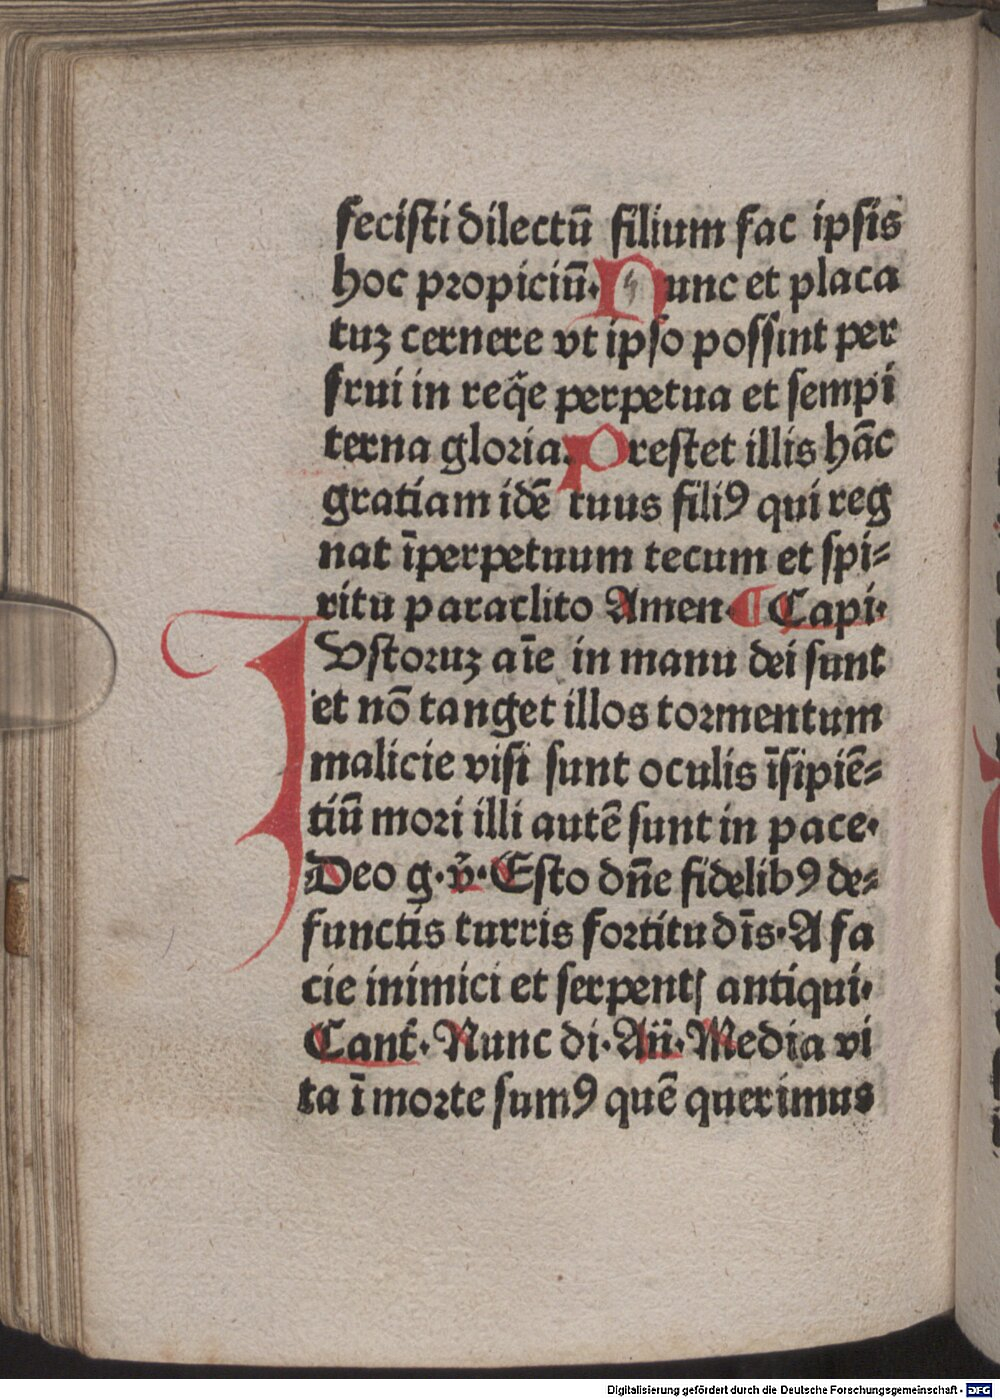 feciſti dilectū filium fac ipſis
hoc propiciū· Nunc et placa
tuꝫ cernere vt ipſo poſſint per
frui in req̄e perpetua et ſempi
terna gloria. Preſtet illis hāc
gratiam idē tuus filiꝰ qui reg
nat īperpetuum tecum et ſpi⸗
ritu paraclito Amen· ¶ Capi·
IVſtoruꝫ aīe in manu dei ſunt
et nō tanget illos tormentum
malicie viſi ſunt oculis īſipiē⸗
tiū mori illi autē ſunt in pace·
Deo g· v̄· Eſto dn̄e fidelibꝰ de⸗
functis turris fortitudīs· A fa
cie inimici et ſerpentꝭ antiqui·
Cant̄· Nunc di· Aīi· Media vi
ta ī morte ſumꝰ quē querimus
Digitalisierung gefördert durch die Deutsche Forschungsgemeinschaft - DFG